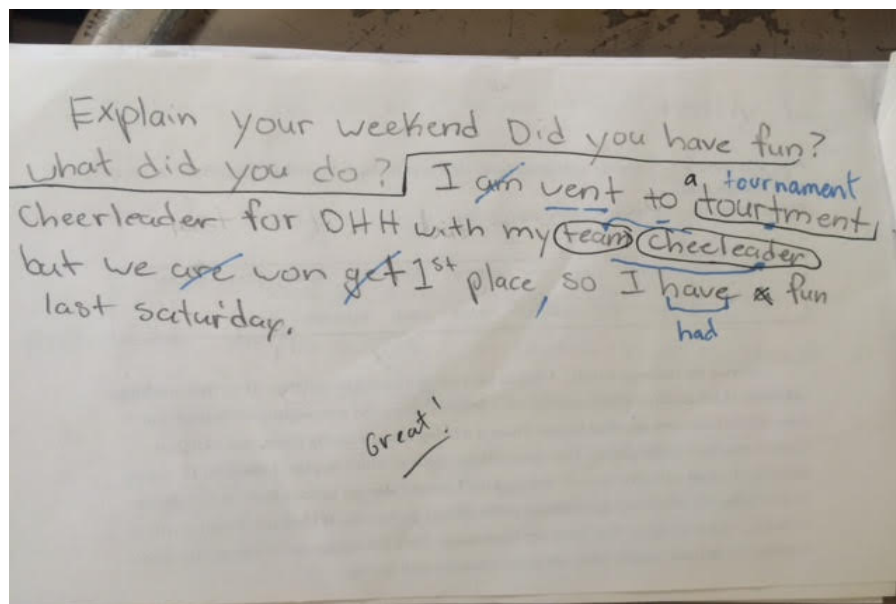 Explain your weekend Did you have fun?
what did you do? I am vent to a tourtment tournament
Cheerleader for DHH with my team cheeleader
but we are won get 1st place, so I have a fun
had
last saturday.
Great!